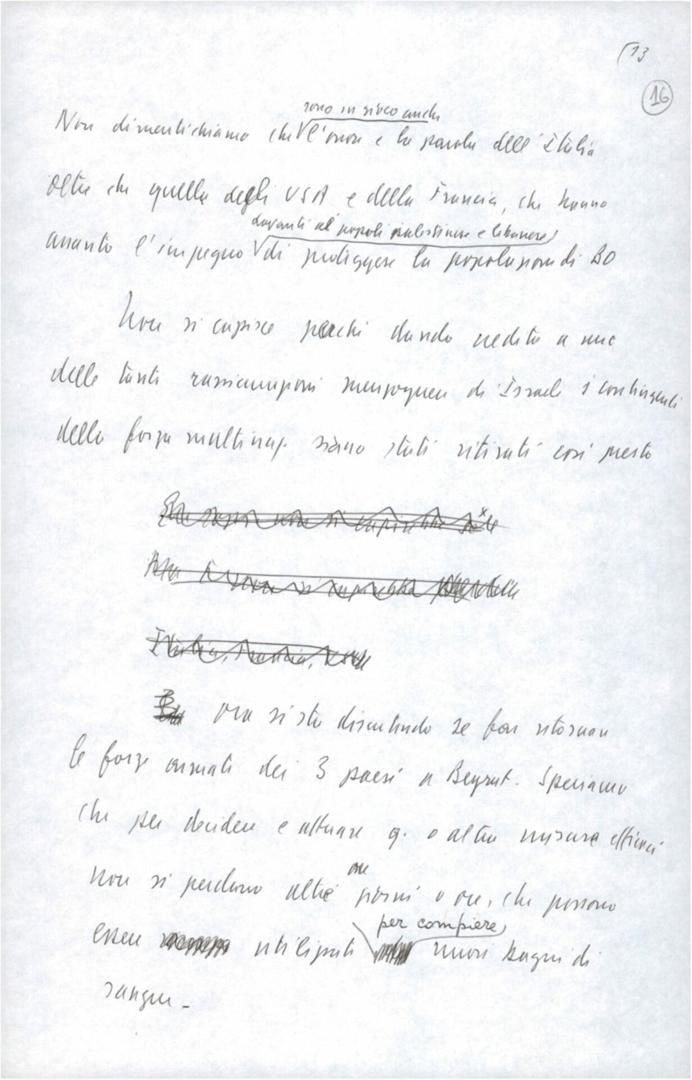 13
16
sono in gioco anche
Non dimentichiamo che l'onore e la parola dell'Italia
oltre che quella degli USA e della Francia, che hanno
davanti ai popoli palestinese e libanese
assunto l'impegno di proteggere la popolazione di BO
Non si capisce perché dando credito a una
delle tante rassicurazioni menzognere di Israele i contingenti
della forza multinaz. siano stati ritirati così presto
Italia, Francia,
ora si sta discutendo se far ritornare
le forze armate dei 3 paesi a Beyrut. Speriamo
che per decidere e attuare q. o altre misure efficaci
ore
non si perdano altri giorni o ore, che possono
per compiere
essere utilizzati nuovi bagni di
sangue -